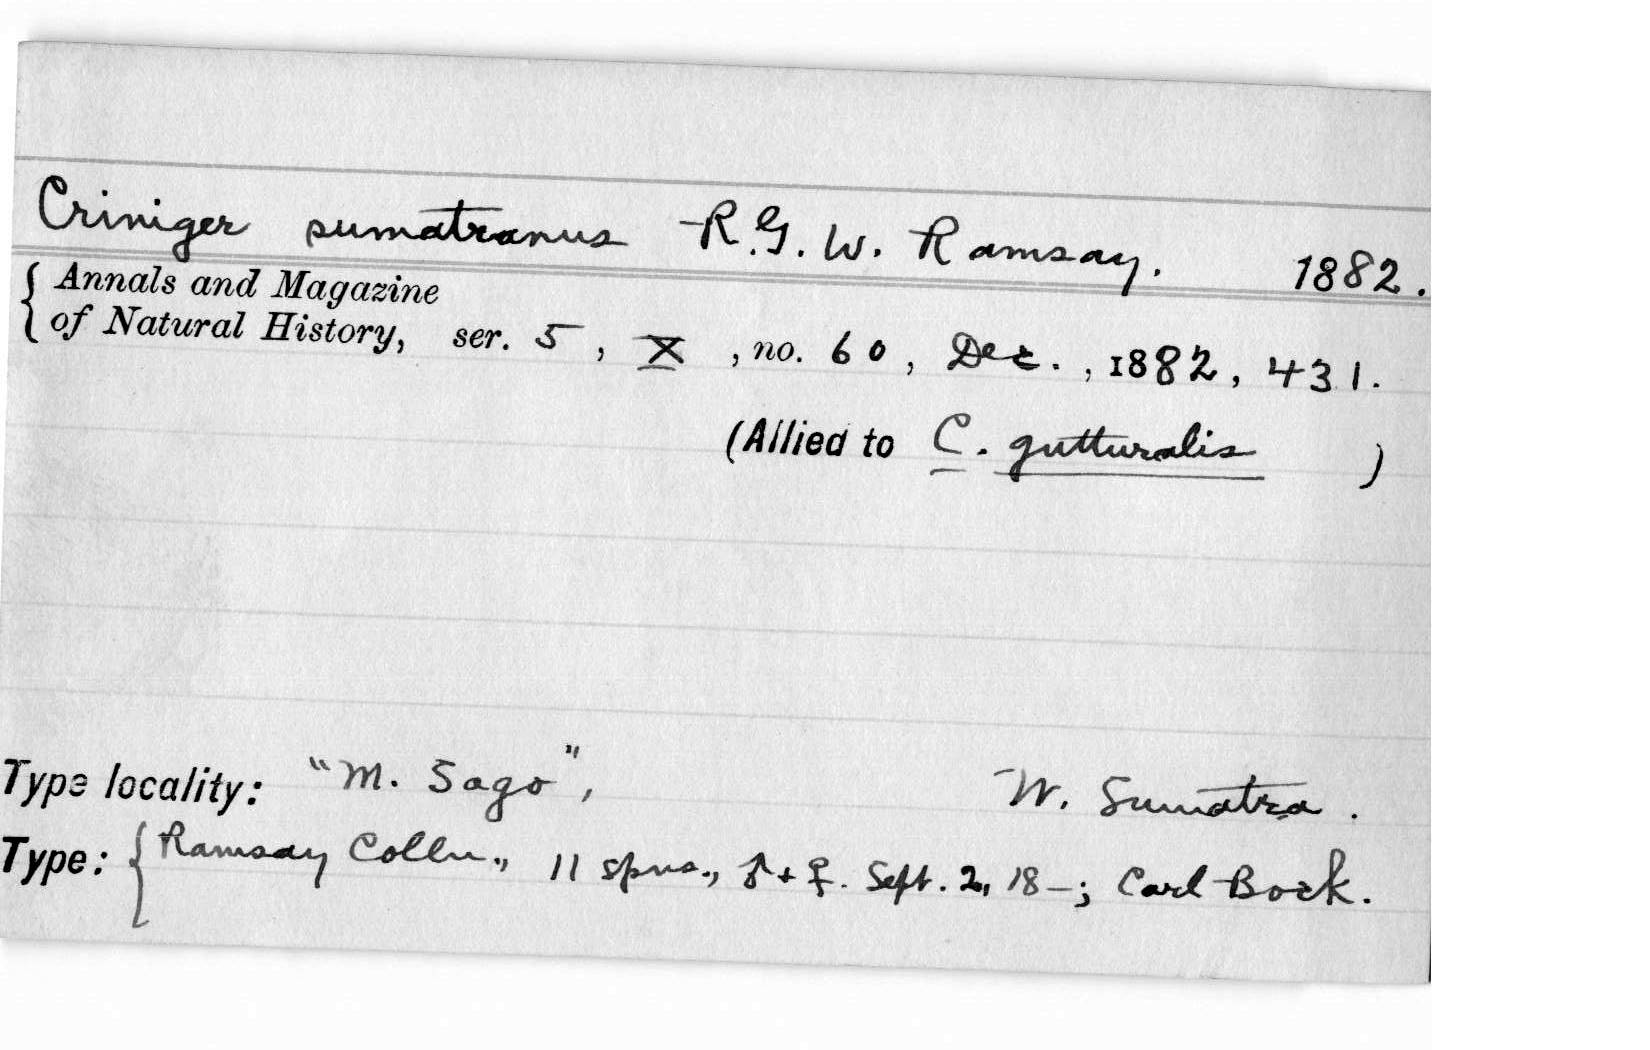 Criniger sumatranus R.G.W. Ramsay. 1882.
{ Annals and Magazine
of Natural History, ser. 5, X, no. 60, Dec., 1882, 431.
(Allied to C. gutturalis )
Type locality: "M. Sago", W. Sumatra.
Type: { Ramsay Colln., 11 spns., ♂ + ♀. Sept. 2, 18–; Carl Bock.